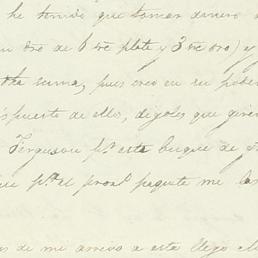 he tenido que tomar dinero
un tro de 6 rre plata y 3 rre oro) y
otra suma, pues creo en su poder
spuesta de ello, digoles que giren
Ferguson pr. esta buque de
pr. el proxo. paquete me las
de mi arrivo a esta llego el